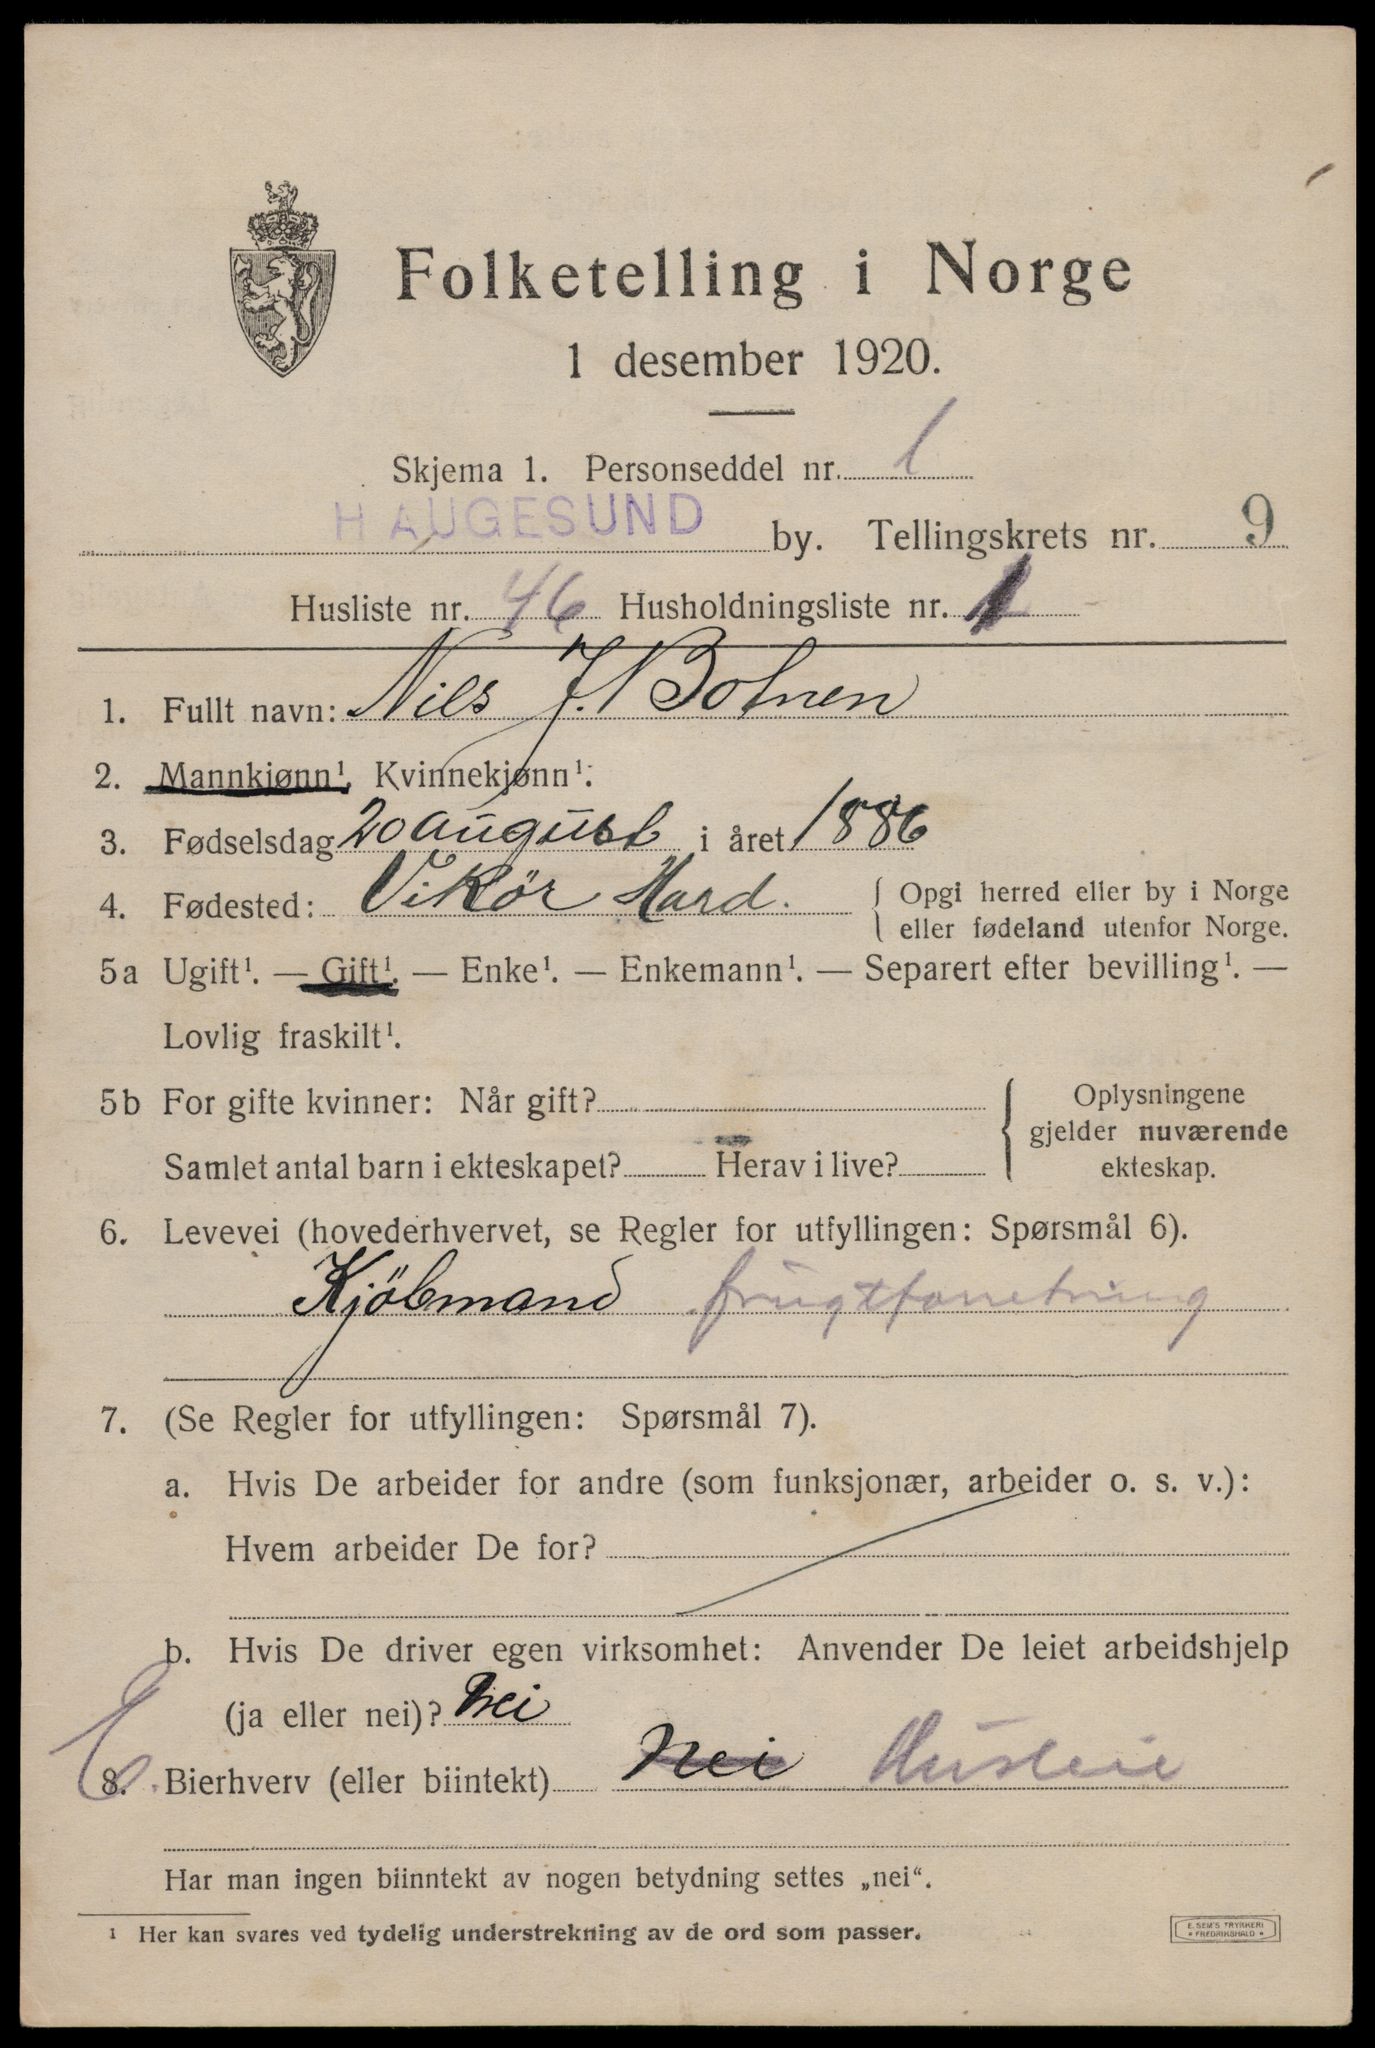 Folketelling i Norge
1 desember 1920.
Skjema 1. Personseddel nr. 1
HAUGESUND by. Tellingskrets nr. 9
Husliste nr. 46 Husholdningsliste nr. 1
1. Fullt navn: Nils J. Botnen
2. Mannkjønn¹, Kvinnekjønn¹.
3. Fødselsdag 20 august i året 1886
4. Fødested: Vikör Hard. { Opgi herred eller by i Norge
eller fødeland utenfor Norge.
5a Ugift¹. — Gift¹. — Enke¹. — Enkemann¹. — Separert efter bevilling¹. —
Lovlig fraskilt¹.
5b For gifte kvinner: Når gift? { Oplysningene
gjelder nuværende
Samlet antal barn i ekteskapet? Herav i live? ekteskap.
6. Levevei (hovederhvervet, se Regler for utfyllingen: Spørsmål 6).
Kjöbmand frugtforretning
7. (Se Regler for utfyllingen: Spørsmål 7).
a. Hvis De arbeider for andre (som funksjonær, arbeider o. s. v.):
Hvem arbeider De for?
b. Hvis De driver egen virksomhet: Anvender De leiet arbeidshjelp
(ja eller nei)? Nei
E
8. Bierhverv (eller biintekt) Nei Husleie
Har man ingen biinntekt av nogen betydning settes „nei“.
¹ Her kan svares ved tydelig understrekning av de ord som passer.
E. SEM'S TRYKKERI
* FREDRIKSHALD *